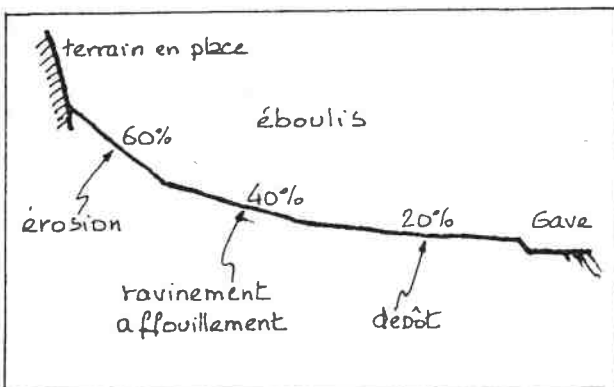 terrain en place
éboulis
60%
40%
20%
Gave
érosion
ravinement
affouillement
dépôt